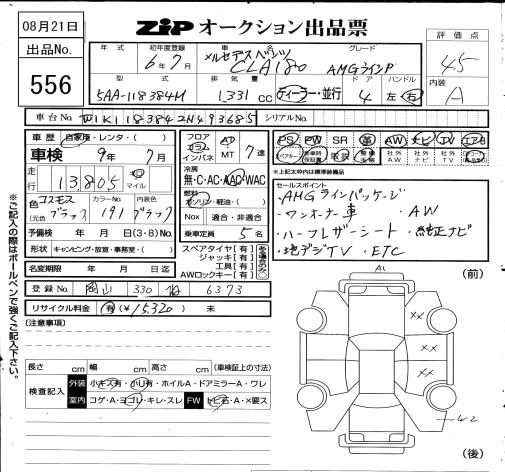 08月21日
出品No.
556
ZIP オークション出品票
評価点
4.5
内装
A
年式 初年度登録 車名 グレード
6年7月 メルセデスベンツ CLA180 AMGラインP
型式 排気量 ドア ハンドル
5AA-118384M 1,331cc ディーラー・並行 4 左・右
車台No. W1K1183842N493685 シリアルNo.
車歴 自家用・レンタ・( )
車検 9年7月
走行 13,805 km マイル
色 コスモスブラック カラーNo. 191 内装色 ブラック
(元色 )
予備検 年 月 日(3・8)No.
形状 キャンピング・放宣・事務室( )
名変期限 年 月 日迄
登録No. 岡山 330 6373
リサイクル料金 有(¥15,320) 未
フロア コラム インパネ AT MT 7速
冷房 無・C・AC・AAC・WAC
燃料 ガソリン・軽油・( )
Nox 適合・非適合
乗車定員 5名
スペアタイヤ[有]
ジャッキ[有]
工具[有]
AWロックキー[有]
PS PW SR 革 AW ナビ TV エアB
スペアキー 新車時保証書 取説 社外AW 社外ナビ 社外TV
※上記太枠内は標準装備品
セールスポイント
・AMGラインパッケージ
・ワンオーナー車 ・AW
・ハーフレザーシート ・純正ナビ
・地デジTV ・ETC
(注意事項)
長さ cm 幅 cm 高さ cm (車検証上の寸法)
検査記入 外装 小キズ有・小凹有・ホイルA・ドアミラーA・ワレ
室内 コゲ・A・ヨゴレ・キレ・スレ FW トビ石・A・×要ス
※ご記入の際はボールペンで強くご記入下さい。
(前)
A1
××
××
××
W2
(後)